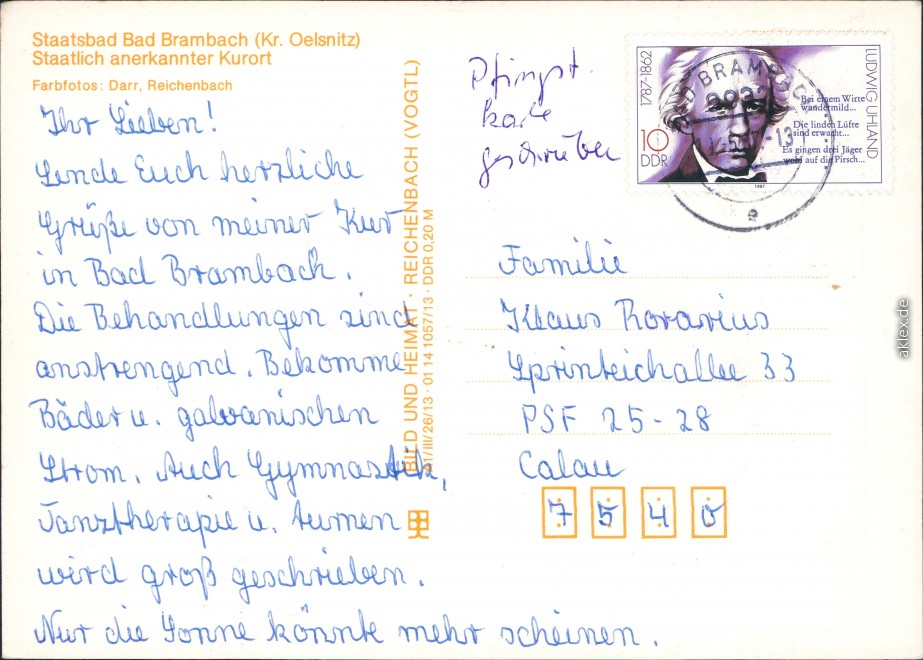 Staatsbad Bad Brambach (Kr. Oelsnitz)
Staatlich anerkannter Kurort
Farbfotos: Darr, Reichenbach
Ihr Lieben!
Sende Euch herzliche
Grüße von meiner Kur
in Bad Brambach.
Die Behandlungen sind
anstrengend. Bekomme
Bäder u. galvanischen
Strom. Auch Gymnastik,
Tanztherapie u. turnen
wird groß geschrieben.
Nur die Sonne könnte mehr scheinen.
BILD UND HEIMAT · REICHENBACH (VOGTL)
A1/III/26/13 · 01 14 1057/13 · DDR 0,20 M
Pfingst.
karte
geschrieben
1787-1862
LUDWIG UHLAND
10
DDR
Bei einem Wirte
wundermild...
Die linden Lüfte
sind erwacht...
Es gingen drei Jäger
wohl auf die Pirsch...
1987
BAD BRAMBACH
e
Familie
Klaus Rorarius
Sprinteichallee 33
PSF 25-28
Calau
7 5 4 0
aklex.de